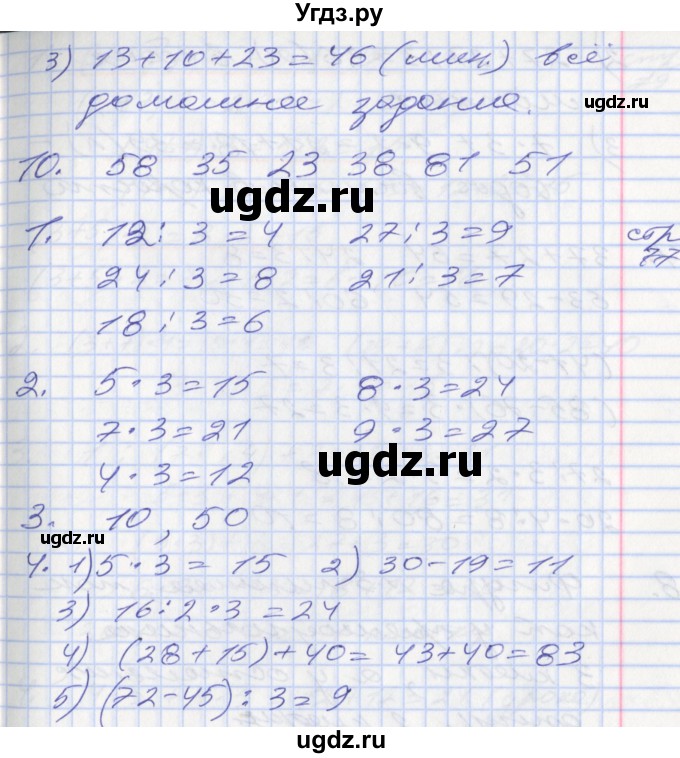 Угдз.ру
3) 13+10+23=46 (мин.) всё
домашнее задание.
ugdz.ru
10. 58 35 23 38 81 51
ugdz.ru
1. 12:3=4 27:3=9 стр
24:3=8 21:3=7 77
18:3=6
2. 5·3=15 8·3=24
7·3=21 9·3=27
ugdz.ru
4·3=12
3. 10, 50
ugdz.ru
4. 1) 5·3= 15 2) 30-19=11
3) 16:2·3=24
4) (28+15)+40= 43+40=83
5) (72-45):3=9
ugdz.ru